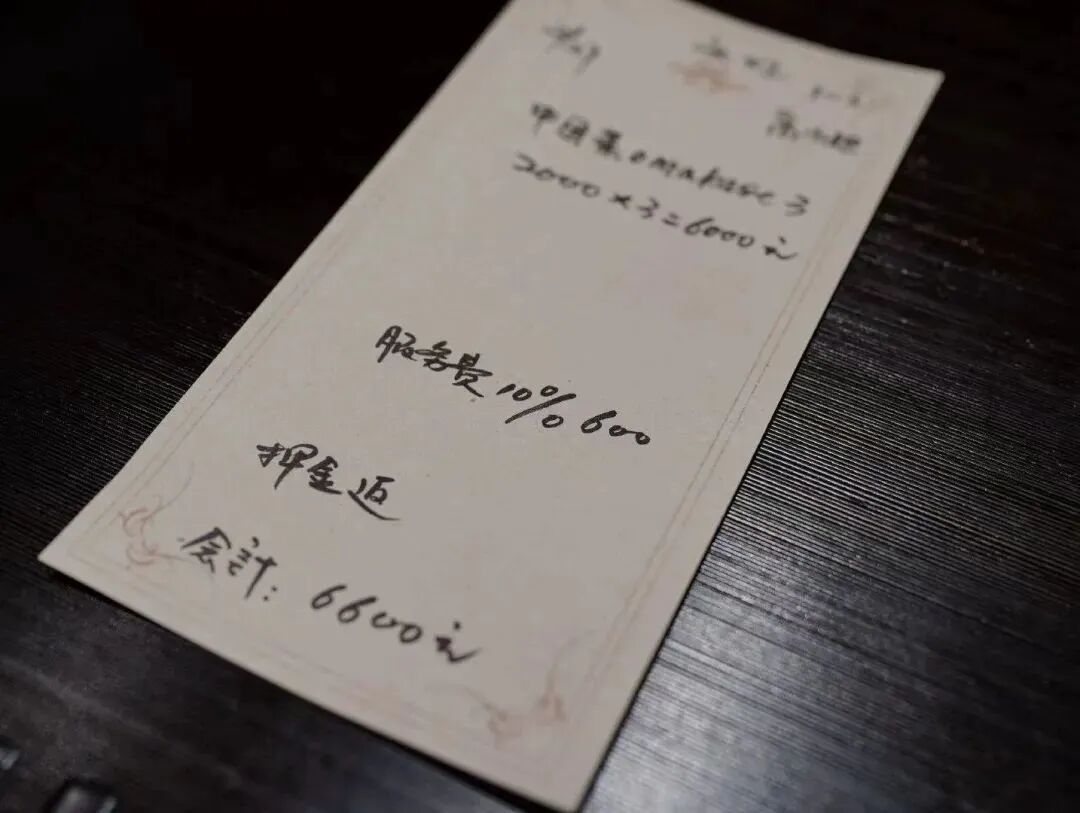 中国菜omakase 3
2000×3=6000元
服务费10% 600
押金返
会計：6600元